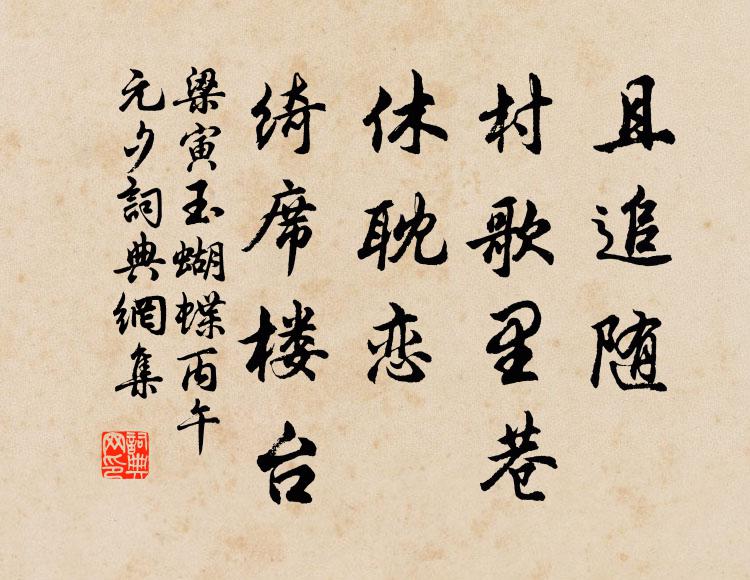 且追随
村歌里巷
休耽恋
绮席楼台
梁寅玉蝴蝶丙午
元夕詞典網集
詞典
网印